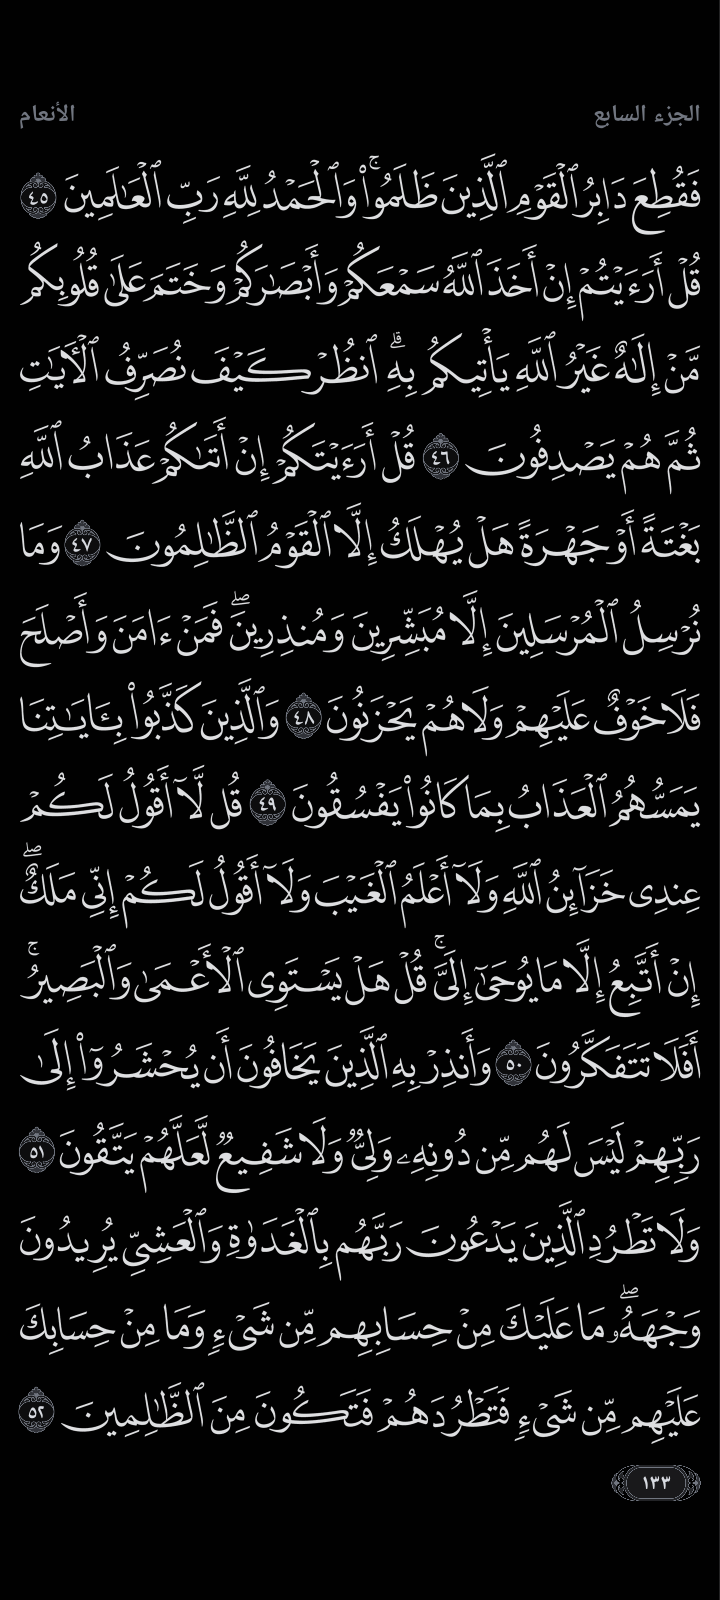 الجزء السابع
الأنعام
فَقُطِعَ دَابِرُ ٱلْقَوْمِ ٱلَّذِينَ ظَلَمُوا۟ ۚ وَٱلْحَمْدُ لِلَّهِ رَبِّ ٱلْعَـٰلَمِينَ ٤٥
قُلْ أَرَءَيْتُمْ إِنْ أَخَذَ ٱللَّهُ سَمْعَكُمْ وَأَبْصَـٰرَكُمْ وَخَتَمَ عَلَىٰ قُلُوبِكُم
مَّنْ إِلَـٰهٌ غَيْرُ ٱللَّهِ يَأْتِيكُم بِهِ ۗ ٱنظُرْ كَيْفَ نُصَرِّفُ ٱلْـَٔايَـٰتِ
ثُمَّ هُمْ يَصْدِفُونَ ٤٦ قُلْ أَرَءَيْتَكُمْ إِنْ أَتَىٰكُمْ عَذَابُ ٱللَّهِ
بَغْتَةً أَوْ جَهْرَةً هَلْ يُهْلَكُ إِلَّا ٱلْقَوْمُ ٱلظَّـٰلِمُونَ ٤٧ وَمَا
نُرْسِلُ ٱلْمُرْسَلِينَ إِلَّا مُبَشِّرِينَ وَمُنذِرِينَ ۖ فَمَنْ ءَامَنَ وَأَصْلَحَ
فَلَا خَوْفٌ عَلَيْهِمْ وَلَا هُمْ يَحْزَنُونَ ٤٨ وَٱلَّذِينَ كَذَّبُوا۟ بِـَٔايَـٰتِنَا
يَمَسُّهُمُ ٱلْعَذَابُ بِمَا كَانُوا۟ يَفْسُقُونَ ٤٩ قُل لَّآ أَقُولُ لَكُمْ
عِندِى خَزَآئِنُ ٱللَّهِ وَلَآ أَعْلَمُ ٱلْغَيْبَ وَلَآ أَقُولُ لَكُمْ إِنِّى مَلَكٌ ۖ
إِنْ أَتَّبِعُ إِلَّا مَا يُوحَىٰٓ إِلَىَّ ۚ قُلْ هَلْ يَسْتَوِى ٱلْأَعْمَىٰ وَٱلْبَصِيرُ ۚ
أَفَلَا تَتَفَكَّرُونَ ٥٠ وَأَنذِرْ بِهِ ٱلَّذِينَ يَخَافُونَ أَن يُحْشَرُوٓا۟ إِلَىٰ
رَبِّهِمْ لَيْسَ لَهُم مِّن دُونِهِۦ وَلِىٌّ وَلَا شَفِيعٌ لَّعَلَّهُمْ يَتَّقُونَ ٥١
وَلَا تَطْرُدِ ٱلَّذِينَ يَدْعُونَ رَبَّهُم بِٱلْغَدَوٰةِ وَٱلْعَشِىِّ يُرِيدُونَ
وَجْهَهُۥ ۖ مَا عَلَيْكَ مِنْ حِسَابِهِم مِّن شَىْءٍ وَمَا مِنْ حِسَابِكَ
عَلَيْهِم مِّن شَىْءٍ فَتَطْرُدَهُمْ فَتَكُونَ مِنَ ٱلظَّـٰلِمِينَ ٥٢
١٣٣